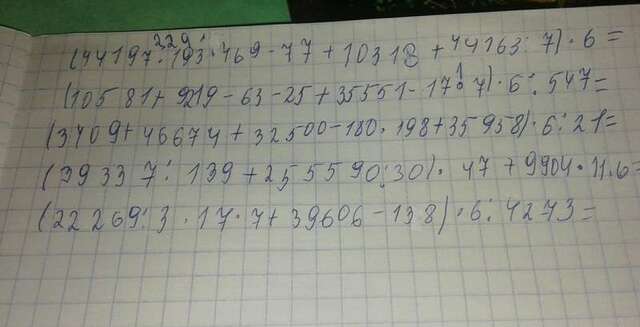 229
(44197:193·469-77+10318+44163:7)·6=
(10581+9219-63-25+35551-17:7)·6:547=
(3409+46674+32500-180·198+35958)·6:21=
(39337:139+255590:30)·47+9904·11·6=
(22269:3·17·7+39606-138)·6:4273=